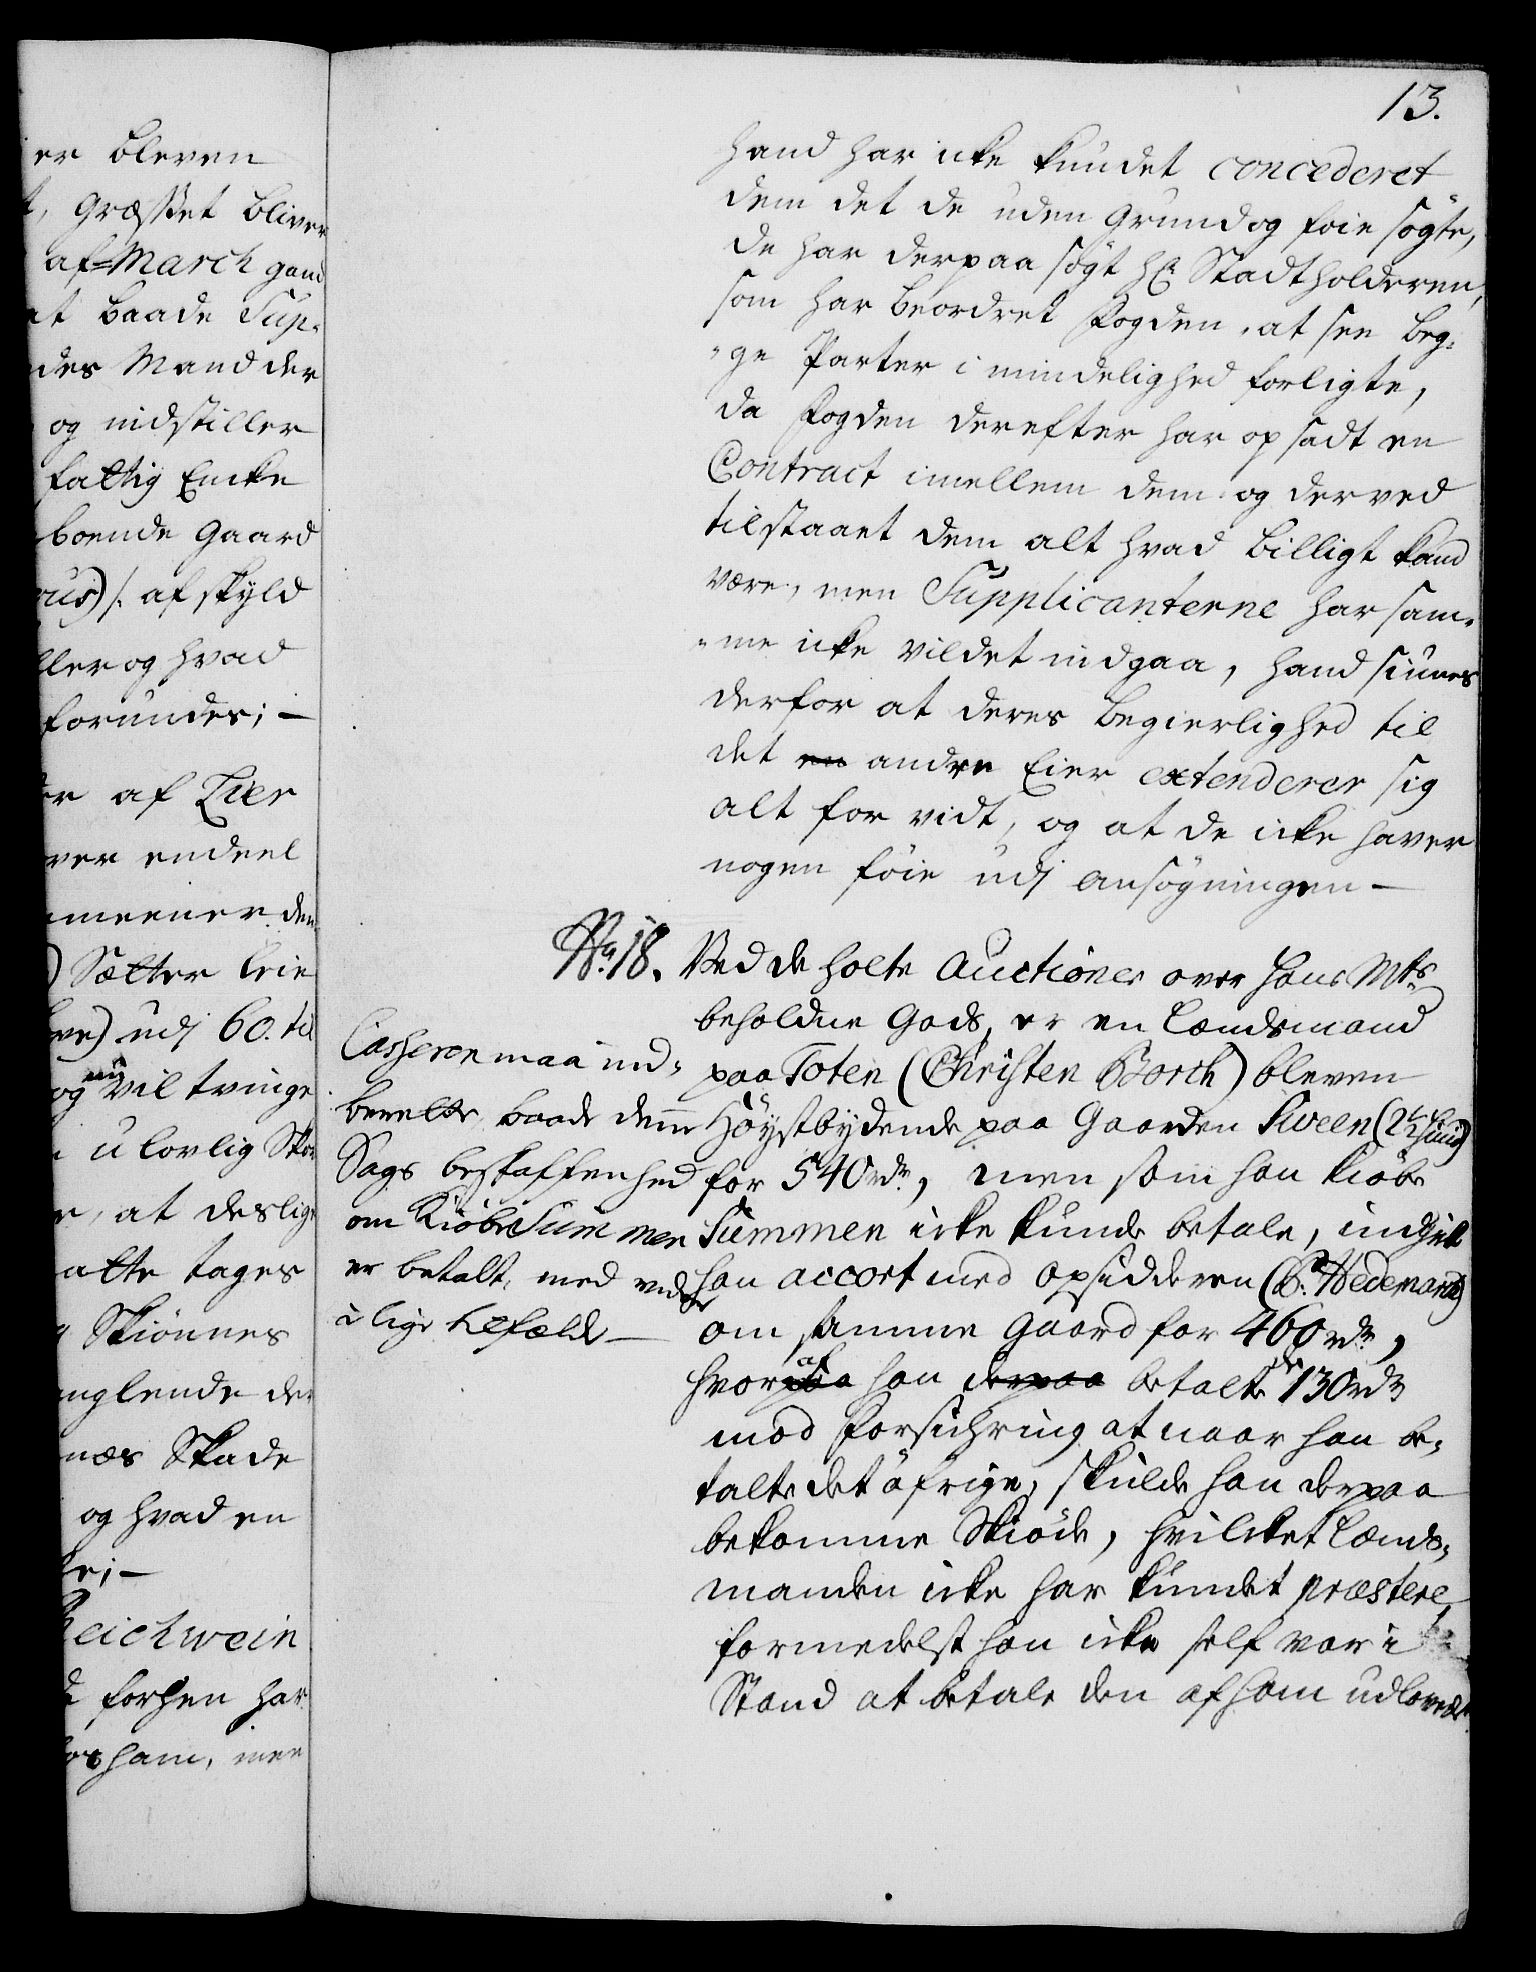 er bleven
t, Græsset bliver
af-March gand
at baade Sup-
des Mand der
og indstiller
fattig Encke
boende Gaard
ous) /: af skyld
ller og hvad
forundes; —
er af Lier
ver endeel
meener den
) Sætter leie
ve) udj 60. til
og nu vil tvinge
i ulovlig
r, at deslige
atte tages
Skiønnes
nglende der
næs Skade
og hvad en
e; —
Reichwein
forhen har
os ham, men
13.
hand har icke kundet concederet
dem det de uden Grund og føie søgte,
de har derpaa søgt Hr Stadtholderen,
som har beordret Fogden, at see beg-
-ge Parter i mindelighed forligte,
da Fogden derefter har opsadt en
Contract imellem dem og derved
tilstaaet dem alt hvad billigt kand
være, men Supplicanterne har sam-
-me icke vildet indgaa, hand siunes
derfor at deres begierlighed til
det en andre Eier extenderer sig
alt for vidt, og at de icke haver
nogen føie udj ansøgningen —
No. 18. Ved de holte Auctioner over Hans Mts
beholdne Gods, er en Landsmand
paa Toten (Christen Borch) bleven
Høystbydende paa Gaarden Sween (2½ huud)
for 540 rdr, men som han kiøbe
Summen icke kunde betale, indgik
han accort med Opsidderen (P. Hedemark)
om samme Gaard for 460 rdr,
hvorpaa af han derpaa betalte de 130 rdr
mod Forsichring at naar han be-
talte det øfrige, skulde han derpaa
bekomme Skiøde, hvilcket Lands-
manden icke har kundet præstere,
formedelst han icke self var i
Stand at betale den af ham udlovede
Casseren maa ind-
berette, baade denne
Sags beskaffenhed
om KiøbeSummen
er betalt, med videre
i lige tilfælde —